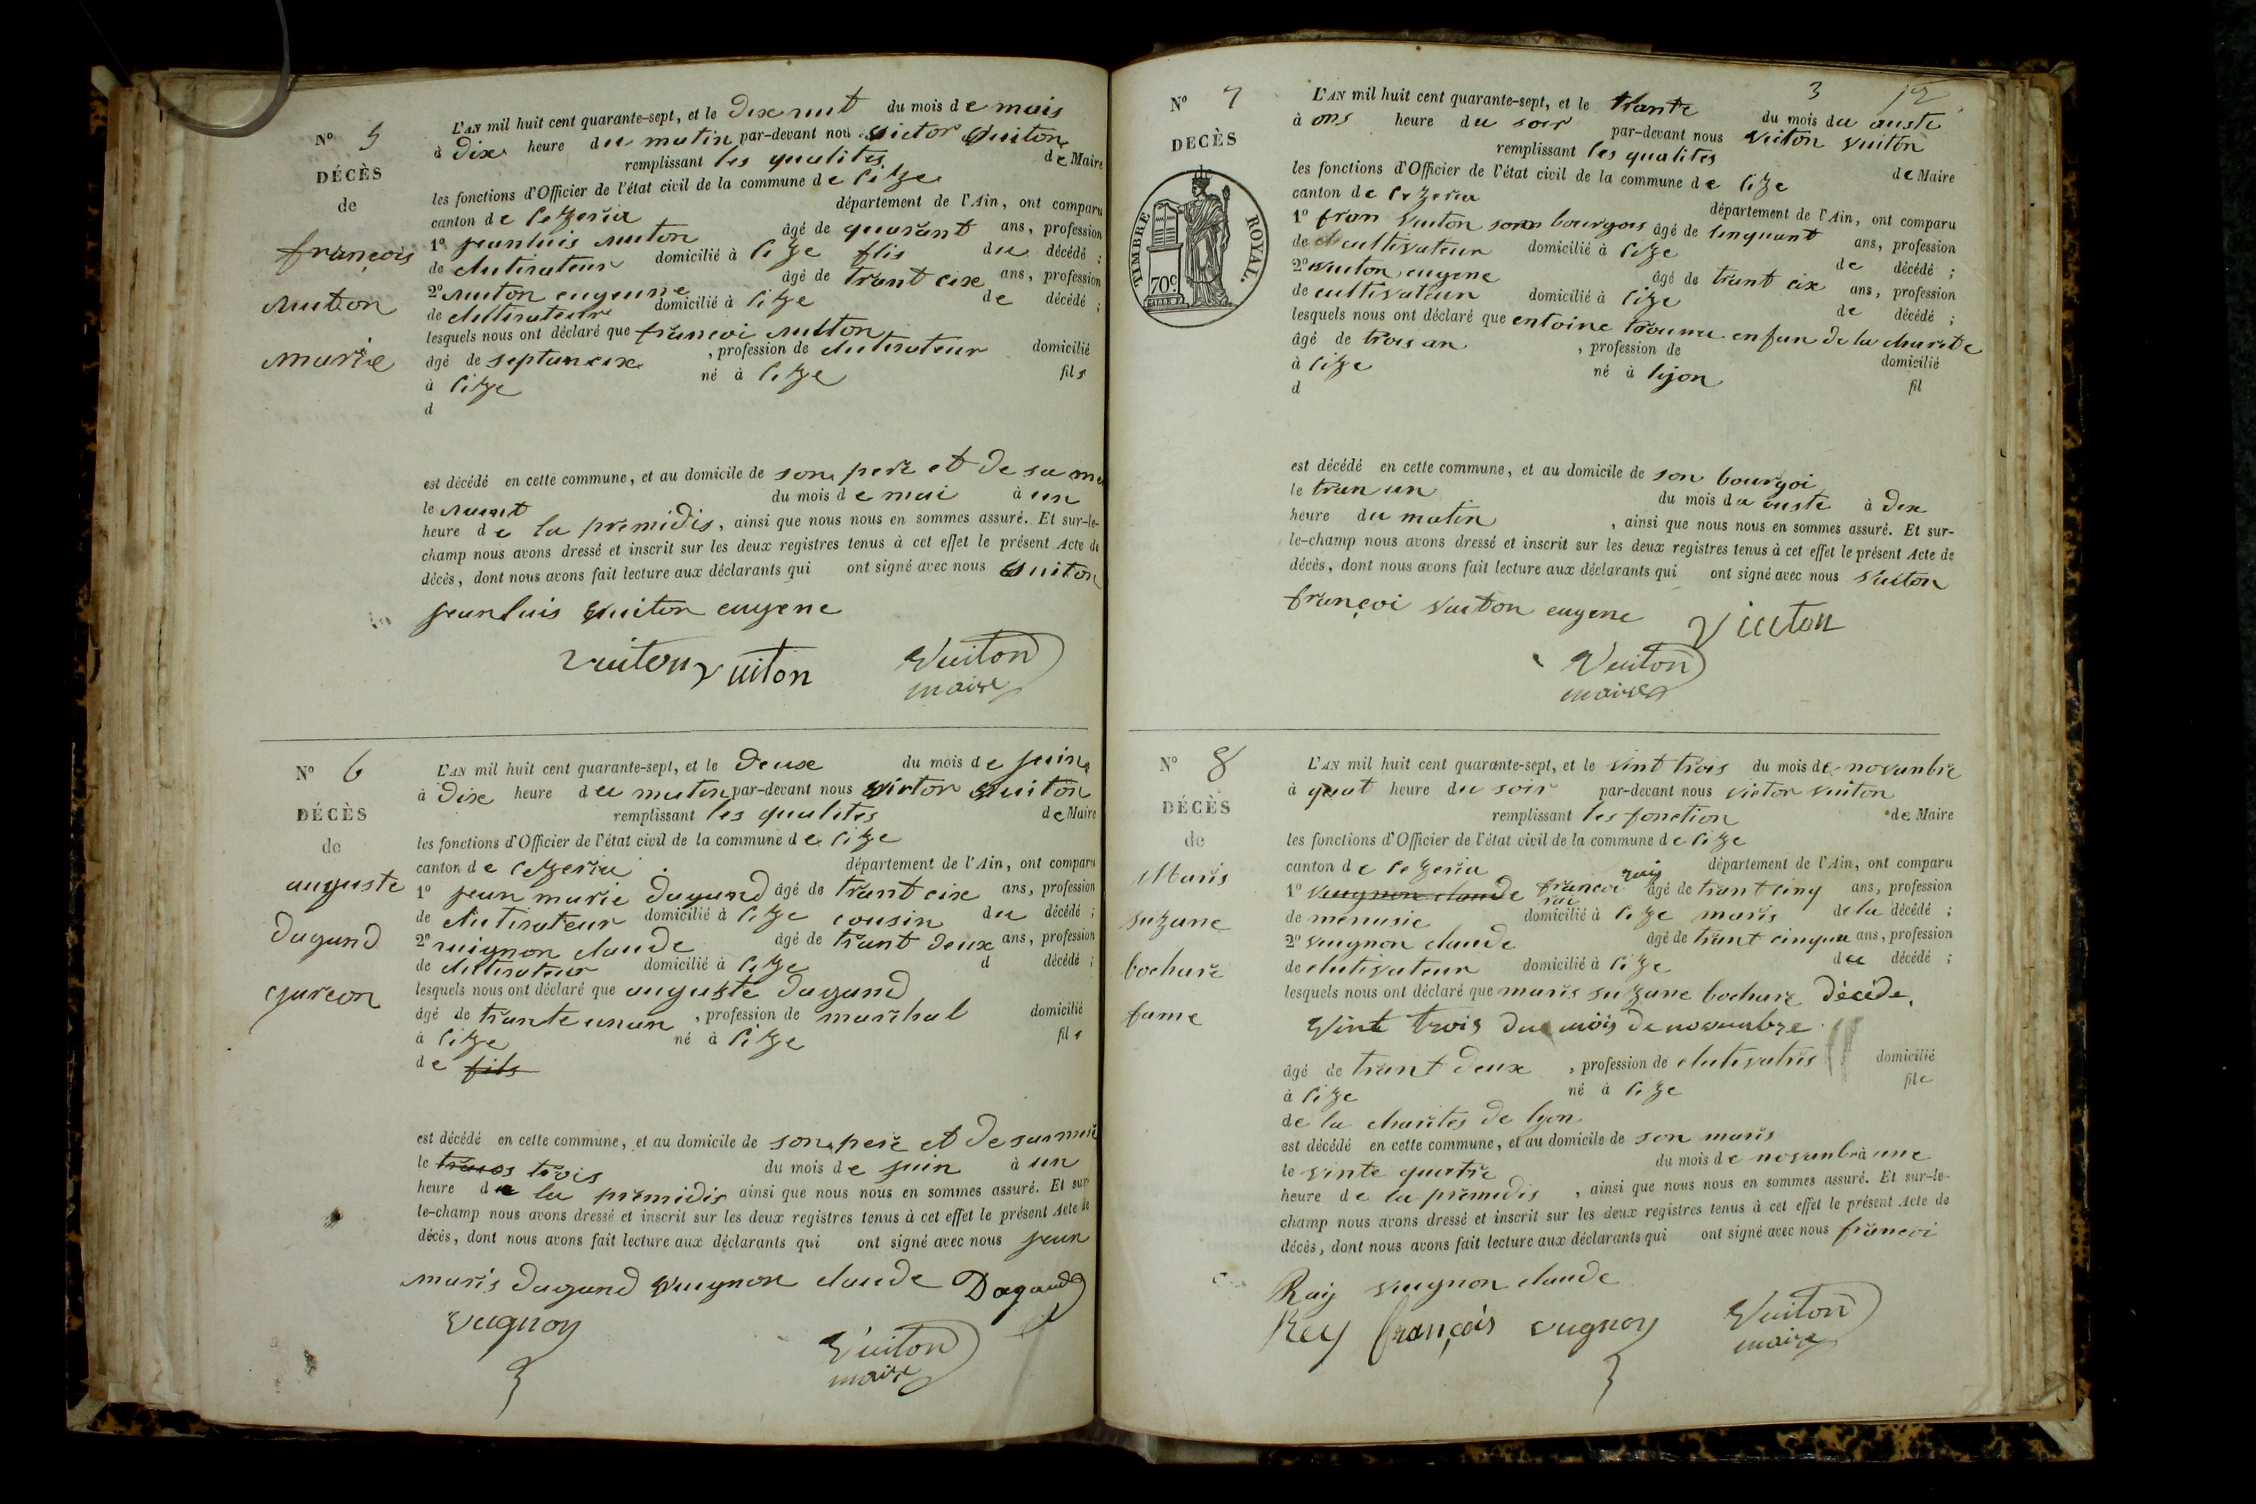 N° 5
DÉCÈS
de
françois
vuiton
marie
L'AN mil huit cent quarante-sept, et le dix nut du mois de mais
à dix heure du matin par-devant nou victor vuiton
remplissant les qualites de Maire
les fonctions d'Officier de l'état civil de la commune de lize
canton de lezeria département de l'Ain, ont comparu
1° jeanluis vuiton âgé de quarant ans, profession
de clutivateur domicilié à lize flis du décédé ;
2° vuiton eugenne âgé de trant cix ans, profession
de clutivateur domicilié à lize de décédé ;
lesquels nous ont déclaré que francoi vuiton
âgé de septan cix , profession de clutivateur domicilié
à lize né à lize fils
d
est décédé en cette commune, et au domicile de son perè et de sa me
le nuant du mois de mai à un
heure de la premidis, ainsi que nous nous en sommes assuré. Et sur-le-
champ nous avons dressé et inscrit sur les deux registres tenus à cet effet le présent Acte de
décès, dont nous avons fait lecture aux déclarants qui ont signé avec nous vuiton
jeanluis vuiton eugene
vuiton vuiton Vuiton
maire
N° 6
DÉCÈS
de
auguste
dagand
garcon
L'AN mil huit cent quarante-sept, et le deux du mois de juin
à dix heure du matin par-devant nous victor vuiton
remplissant les qualites de Maire
les fonctions d'Officier de l'état civil de la commune de lize
canton de cezeria département de l'Ain, ont comparu
1° jean marie dagand âgé de trant cix ans, profession
de clutivateur domicilié à lize cousin du décédé ;
2° vuignon claude âgé de trant deux ans, profession
de clutivateur domicilié à lize d décédé ;
lesquels nous ont déclaré que auguste dagand
âgé de trante unan , profession de marchal domicilié
à lize né à lize fils
de fils
est décédé en cette commune, et au domicile de son perè et de sa merè
le trois du mois de juin à un
heure de la premidis ainsi que nous nous en sommes assuré. Et sur
le-champ nous avons dressé et inscrit sur les deux registres tenus à cet effet le présent Acte de
décès, dont nous avons fait lecture aux déclarants qui ont signé avec nous jean
maris dagand vuignon claude Dagand
Vugnon Vuiton
maire
3 12
N° 7
DECÈS
TIMBRE ROYAL.
70c.
L'AN mil huit cent quarante-sept, et le trante du mois du auste
à ons heure du soir par-devant nous victon vuiton
remplissant les qualites de Maire
les fonctions d'Officier de l'état civil de la commune de lize
canton de cezeria département de l'Ain, ont comparu
1° fran vuiton son bourgois âgé de sinquant ans, profession
de cultivateur domicilié à lize de décédé ;
2° vuiton eugene âgé de trant cix ans, profession
de cultivateur domicilié à lize de décédé ;
lesquels nous ont déclaré que entoine enfan de la charite
âgé de trois an , profession de domicilié
à lize né à lijon fil
d
est décédé en cette commune, et au domicile de son bourgoi
le tran un du mois du auste à dix
heure du matin , ainsi que nous nous en sommes assuré. Et sur-
le-champ nous avons dressé et inscrit sur les deux registres tenus à cet effet le présent Acte de
décès, dont nous avons fait lecture aux déclarants qui ont signé avec nous Vuiton
françoi vuiton eugene Vuiton
Vuiton
maire
N° 8
DÉCÈS
de
Maris
suzane
bocharè
fame
L'AN mil huit cent quarante-sept, et le vint trois du mois de novanbre
à quat heure du soir par-devant nous victor vuiton
remplissant les fonction de Maire
les fonctions d'Officier de l'état civil de la commune de lize
canton de cezeria département de l'Ain, ont comparu
1° vuignon claude francoi raij âgé de trant cinq ans, profession
de menusie domicilié à lize maris de la décédé ;
2° vuignon claude âgé de trant cinqua ans, profession
de clutivateur domicilié à lize du décédé ;
lesquels nous ont déclaré que maris suzane bocharè décéde
Vint trois du mois de novembre
âgé de trant deux , profession de clutivatris domicilié
à lize né à lize file
de la charites de lyon
est décédé en cette commune, et au domicile de son maris
le vinte quatre du mois de novanbre à une
heure de la premidis , ainsi que nous nous en sommes assuré. Et sur-le-
champ nous avons dressé et inscrit sur les deux registres tenus à cet effet le présent Acte de
décès, dont nous avons fait lecture aux déclarants qui ont signé avec nous francoi
Raij vuignon claude
Rey françois vugnon Vuiton
maire